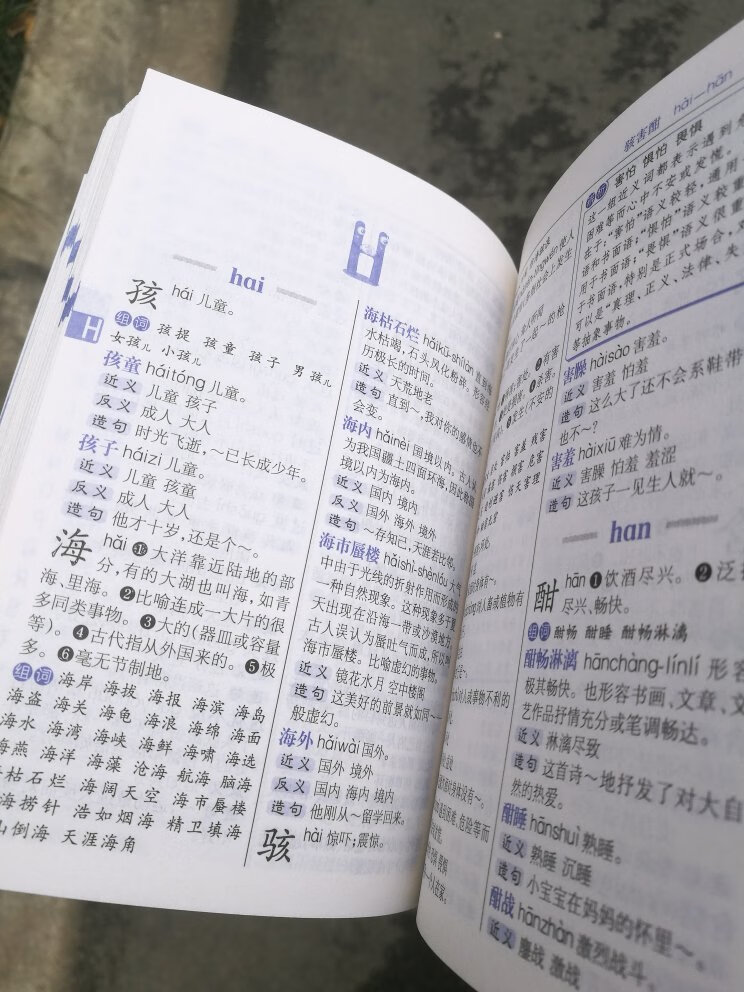 H
hai
孩 hái 儿童。
组词 孩提 孩童 孩子 男孩儿
女孩儿 小孩儿
孩童 háitóng 儿童。
近义 儿童 孩子
反义 成人 大人
造句 时光飞逝,～已长成少年。
孩子 háizi 儿童。
近义 儿童 孩童
反义 成人 大人
造句 他才十岁,还是个～。
海 hǎi ❶大洋靠近陆地的部
分,有的大湖也叫海,如青
海、里海。❷比喻连成一大片的很
多同类事物。❸大的(器皿或容量
等)。❹古代指从外国来的。❺极
多。❻毫无节制地。
组词 海岸 海拔 海报 海滨 海岛
海盗 海关 海龟 海浪 海绵 海面
海水 海湾 海峡 海鲜 海啸 海选
海燕 海洋 海藻 沧海 航海 脑海
枯石烂 海阔天空 海市蜃楼
海捞针 浩如烟海 精卫填海
倒海 天涯海角
H
海枯石烂 hǎikū-shílàn 直到海
水枯竭,石头风化粉碎。形容经
历极长的时间。
近义 天荒地老
造句 直到～,我对你的感情也不
会变。
海内 hǎinèi 国境以内。古人认
为我国疆土四面环海,因此称国
境以内为海内。
近义 国内 境内
反义 国外 海外 境外
造句 ～存知己,天涯若比邻。
海市蜃楼 hǎishì-shènlóu 大气
中由于光线的折射作用而形成的
一种自然现象。这种现象多于夏
天出现在沿海一带或沙漠地方。
古人误认为蜃吐气而成,所以叫
海市蜃楼。比喻虚幻的事物。
近义 镜花水月 空中楼阁
造句 这美好的前景就如同～一
般虚幻。
海外 hǎiwài 国外。
近义 国外 境外
反义 国内 海内 境内
造句 他刚从～留学回来。
骇 hài 惊吓;震惊。
骇害酣 hài—hān
害怕 惧怕 畏惧
这一组近义词都表示遇到
困难等而心中不安或发慌。
在于:“害怕”语义较轻,通用
语和书面语;“惧怕”语义较重
用于书面语;“畏惧”语义很重
于书面语,特别是正式场合,对
可以是“真理、正义、法律、失
等抽象事物。
害臊 hàisào 害羞。
近义 害羞 怕羞
造句 这么大了还不会系鞋带
也不～?
害羞 hàixiū 难为情。
近义 害臊 怕羞 羞涩
造句 这孩子一见生人就～。
han
酣 hān ❶饮酒尽兴。❷泛
尽兴、畅快。
组词 酣畅 酣睡 酣畅淋漓
酣畅淋漓 hānchàng-línlí 形容
极其畅快。也形容书画、文章、文
艺作品抒情充分或笔调畅达。
近义 淋漓尽致
造句 这首诗～地抒发了对大自
然的热爱。
酣睡 hānshuì 熟睡。
近义 熟睡 沉睡
造句 小宝宝在妈妈的怀里～。
酣战 hānzhàn 激烈战斗。
近义 鏖战 激战